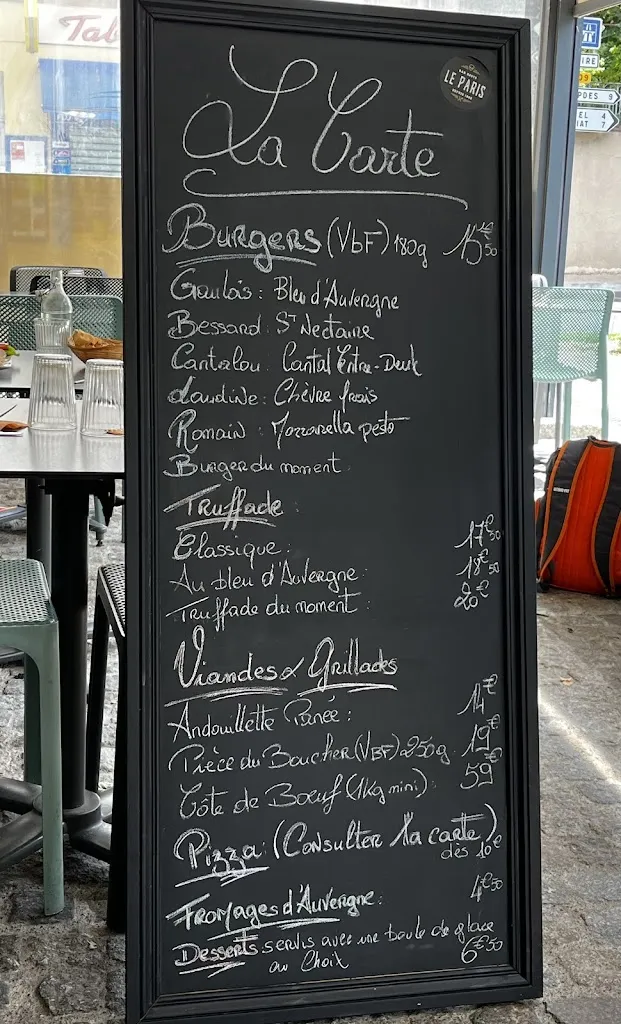 Tab
LE PARIS
La Carte
Burgers (VBF) 180g 15€50
Gaulois : Bleu d'Auvergne
Bessard : St Nectaire
Cantalou : Cantal Entre-Deux
Chèvre frais
Romain : Mozzarella pesto
Burger du moment
Truffade :
Classique : 17€50
Au bleu d'Auvergne : 18€50
Truffade du moment : 20€
Viandes & Grillades
Andouillette Panée : 14€
Pièce du Boucher (VBF) 250g 19€
Côte de Boeuf (1Kg mini) : 59€
Pizza : (Consulter la carte)
dès 10€
Fromages d'Auvergne : 4€50
Desserts servis avec une boule de glace
au Choix 6€50